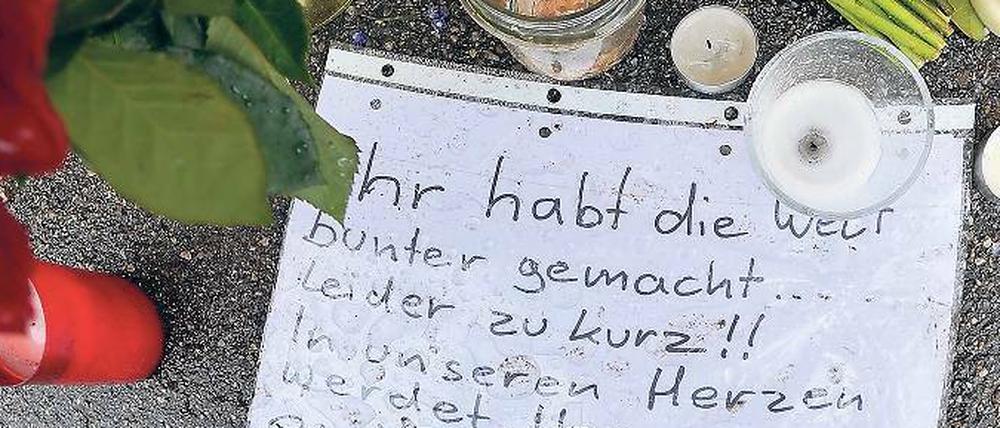 Ihr habt die Welt
bunter gemacht....
Leider zu kurz!!
In unseren Herzen
werdet